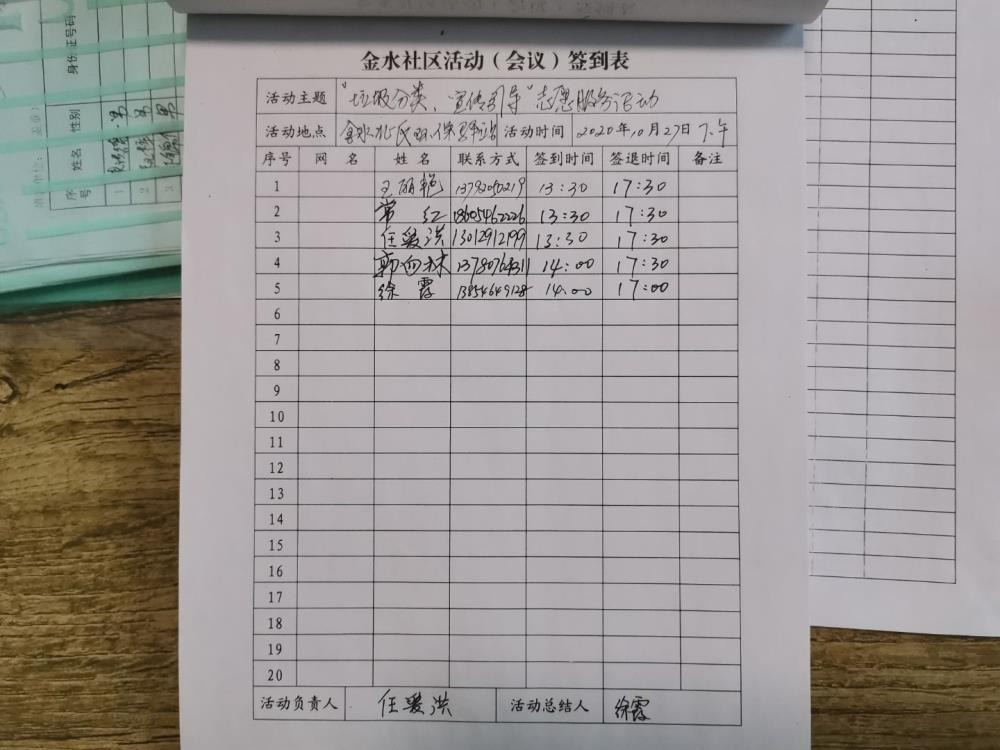 金水社区活动（会议）签到表
活动主题 "垃圾分类、宣传引导"志愿服务活动
活动地点 金水 民环保驿站 活动时间 2020年10月27日下午
序号 网 名 姓 名 联系方式 签到时间 签退时间 备注
1 王丽艳 13792050219 13:30 17:30
2 常 红 13605462226 13:30 17:30
3 任爱洪 13012912199 13:30 17:30
4 郭向林 13780764311 14:00 17:30
5 徐霞 13854649128 14:00 17:00
6
7
8
9
10
11
12
13
14
15
16
17
18
19
20
活动负责人 任爱洪 活动总结人 徐霞
身份证号码
性别
姓名
序号
1 男
2 男
3 男